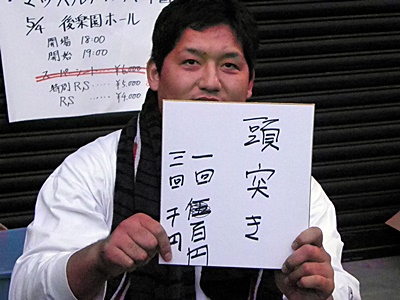 5/4 後楽園ホール
開場 18:00
開始 19:00
スーパーシート ¥6,000
特別R,S ¥5,000
R,S ¥4,000
頭突き
一回 伍百円
三回 千円